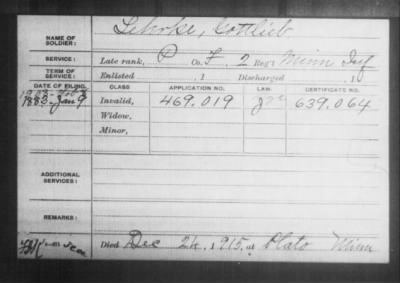 NAME OF SOLDIER: Lehrke, Gottlieb
SERVICE: Late rank, P Co. F, 2 Reg't Minn Inf
TERM OF SERVICE: Enlisted , 1 Discharged , 1
DATE OF FILING. CLASS APPLICATION NO. LAW. CERTIFICATE NO.
1883-Jan 9 Invalid, 469.019 639.064
Widow,
Minor,
ADDITIONAL SERVICES:
REMARKS:
Died Dec 24, 1915, at Plato Minn